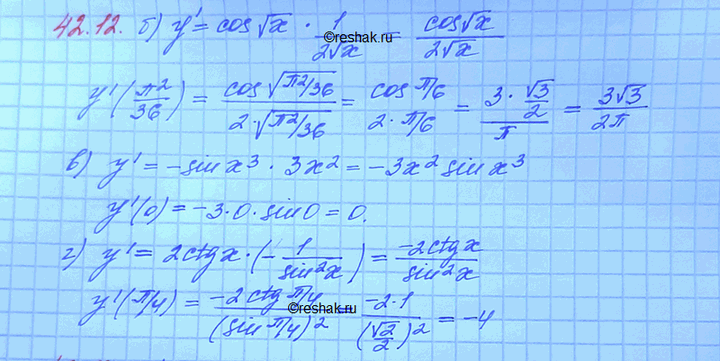 42.12. б) y' = cos√x · 1/(2√x) = cos√x/(2√x)
©reshak.ru
y'(π²/36) = cos√(π²/36)/(2·√(π²/36)) = cos π/6/(2·π/6) = (3·√3/2)/π = 3√3/(2π)
в) y' = -sin x³ · 3x² = -3x² sin x³
y'(0) = -3·0·sin0 = 0.
г) y' = 2ctgx·(-1/sin²x) = -2ctgx/sin²x
y'(π/4) = -2ctg π/4/(sin π/4)² = -2·1/(√2/2)² = -4
©reshak.ru